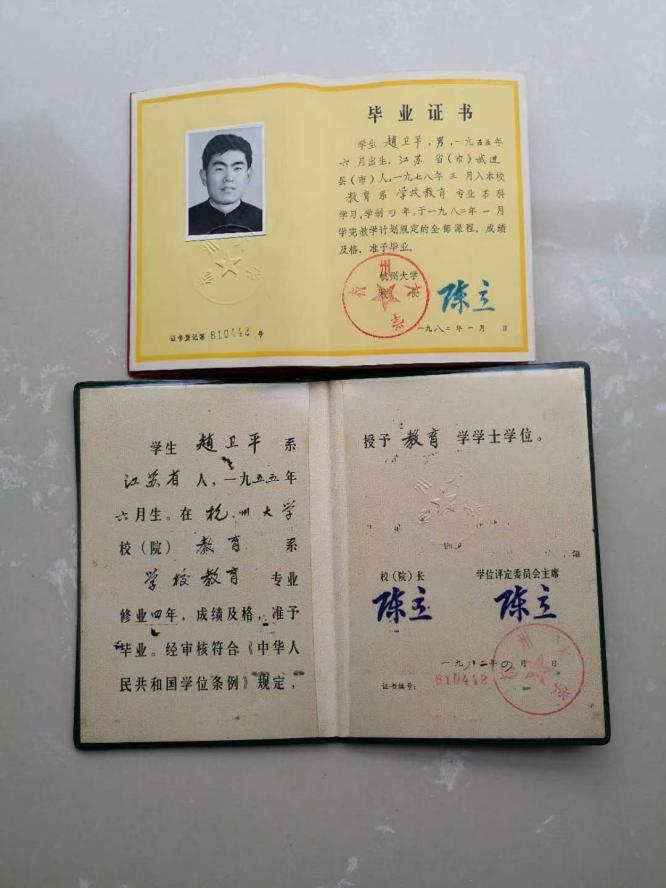 毕业证书
学生 趙卫平，男，一九五五年
六月出生，江苏省（市）武进
县（市）人，一九七八年三月入本校
教育系 学校教育 专业本科
学习，学制四年，于一九八二年一月
学完教学计划规定的全部课程，成绩
及格，准予毕业。
杭州大学
校 长 陈立
一九八二年一月 日
证书登记第 810442 号
学生 趙卫平 系
江苏省 人，一九五五年
六月生。在 杭州大学
校（院） 教育 系
学校教育 专业
修业四年，成绩及格，准予
毕业。经审核符合《中华人
民共和国学位条例》规定，
授予 教育 学学士学位。
校（院）长 学位评定委员会主席
陈立 陈立
一九八二年 月 日
证书编号： 810442